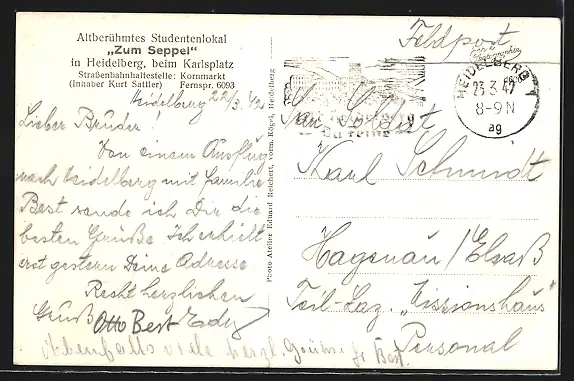 Altberühmtes Studentenlokal
„Zum Seppel“
in Heidelberg, beim Karlsplatz
Straßenbahnhaltestelle: Kornmarkt
(Inhaber Kurt Sattler) Fernspr. 6093
Heidelberg 22/3. 42
Lieber Bruder!
Von einem Ausflug
nach Heidelberg mit Familie
Best sende ich Dir die
besten Grüße. Ich erhielt
erst gestern Deine Adresse
Recht herzlichen
Gruß Otto Best
Ebenfalls viele herzl. Grüße Fr Best.
Photo Atelier Eduard Reichert, vorm. Kögel, Heidelberg
Feldpost
HEIDELBERG 1
23.3.42
8-9N
ag
San. Soldat
Karl Schmidt
Hagenau/Elsaß
Teil-Laz. „Missionshaus“
Personal